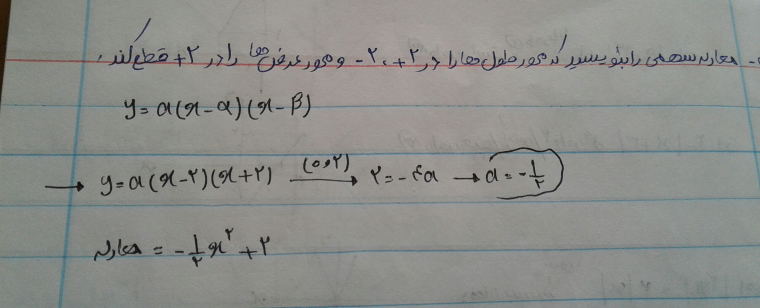 - معادله سهمی را بنویسید که محور طول ها را در ۲+ ، ۲- و محور عرض ها را در ۲+ قطع کند.
y = a(x - α)(x - β)
→ y = a(x - ۲)(x + ۲) (۰و۲)→ ۲ = -۴a → a = -۱/۲
معادله = -۱/۲ x^۲ + ۲